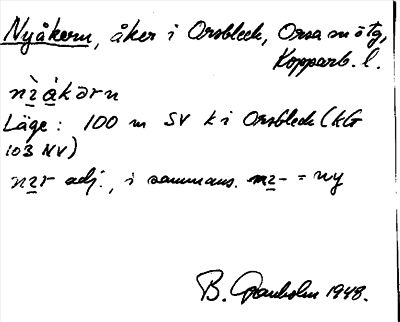 Nyåkern, åker i Orsbleck, Orsa sn ötg,
Kopparb. l.
nìzákərn
Läge: 100 m SV k i Orsbleck (kG
103 NV)
nzr adj., i sammans. nz- = ny
B. Granholm 1948.